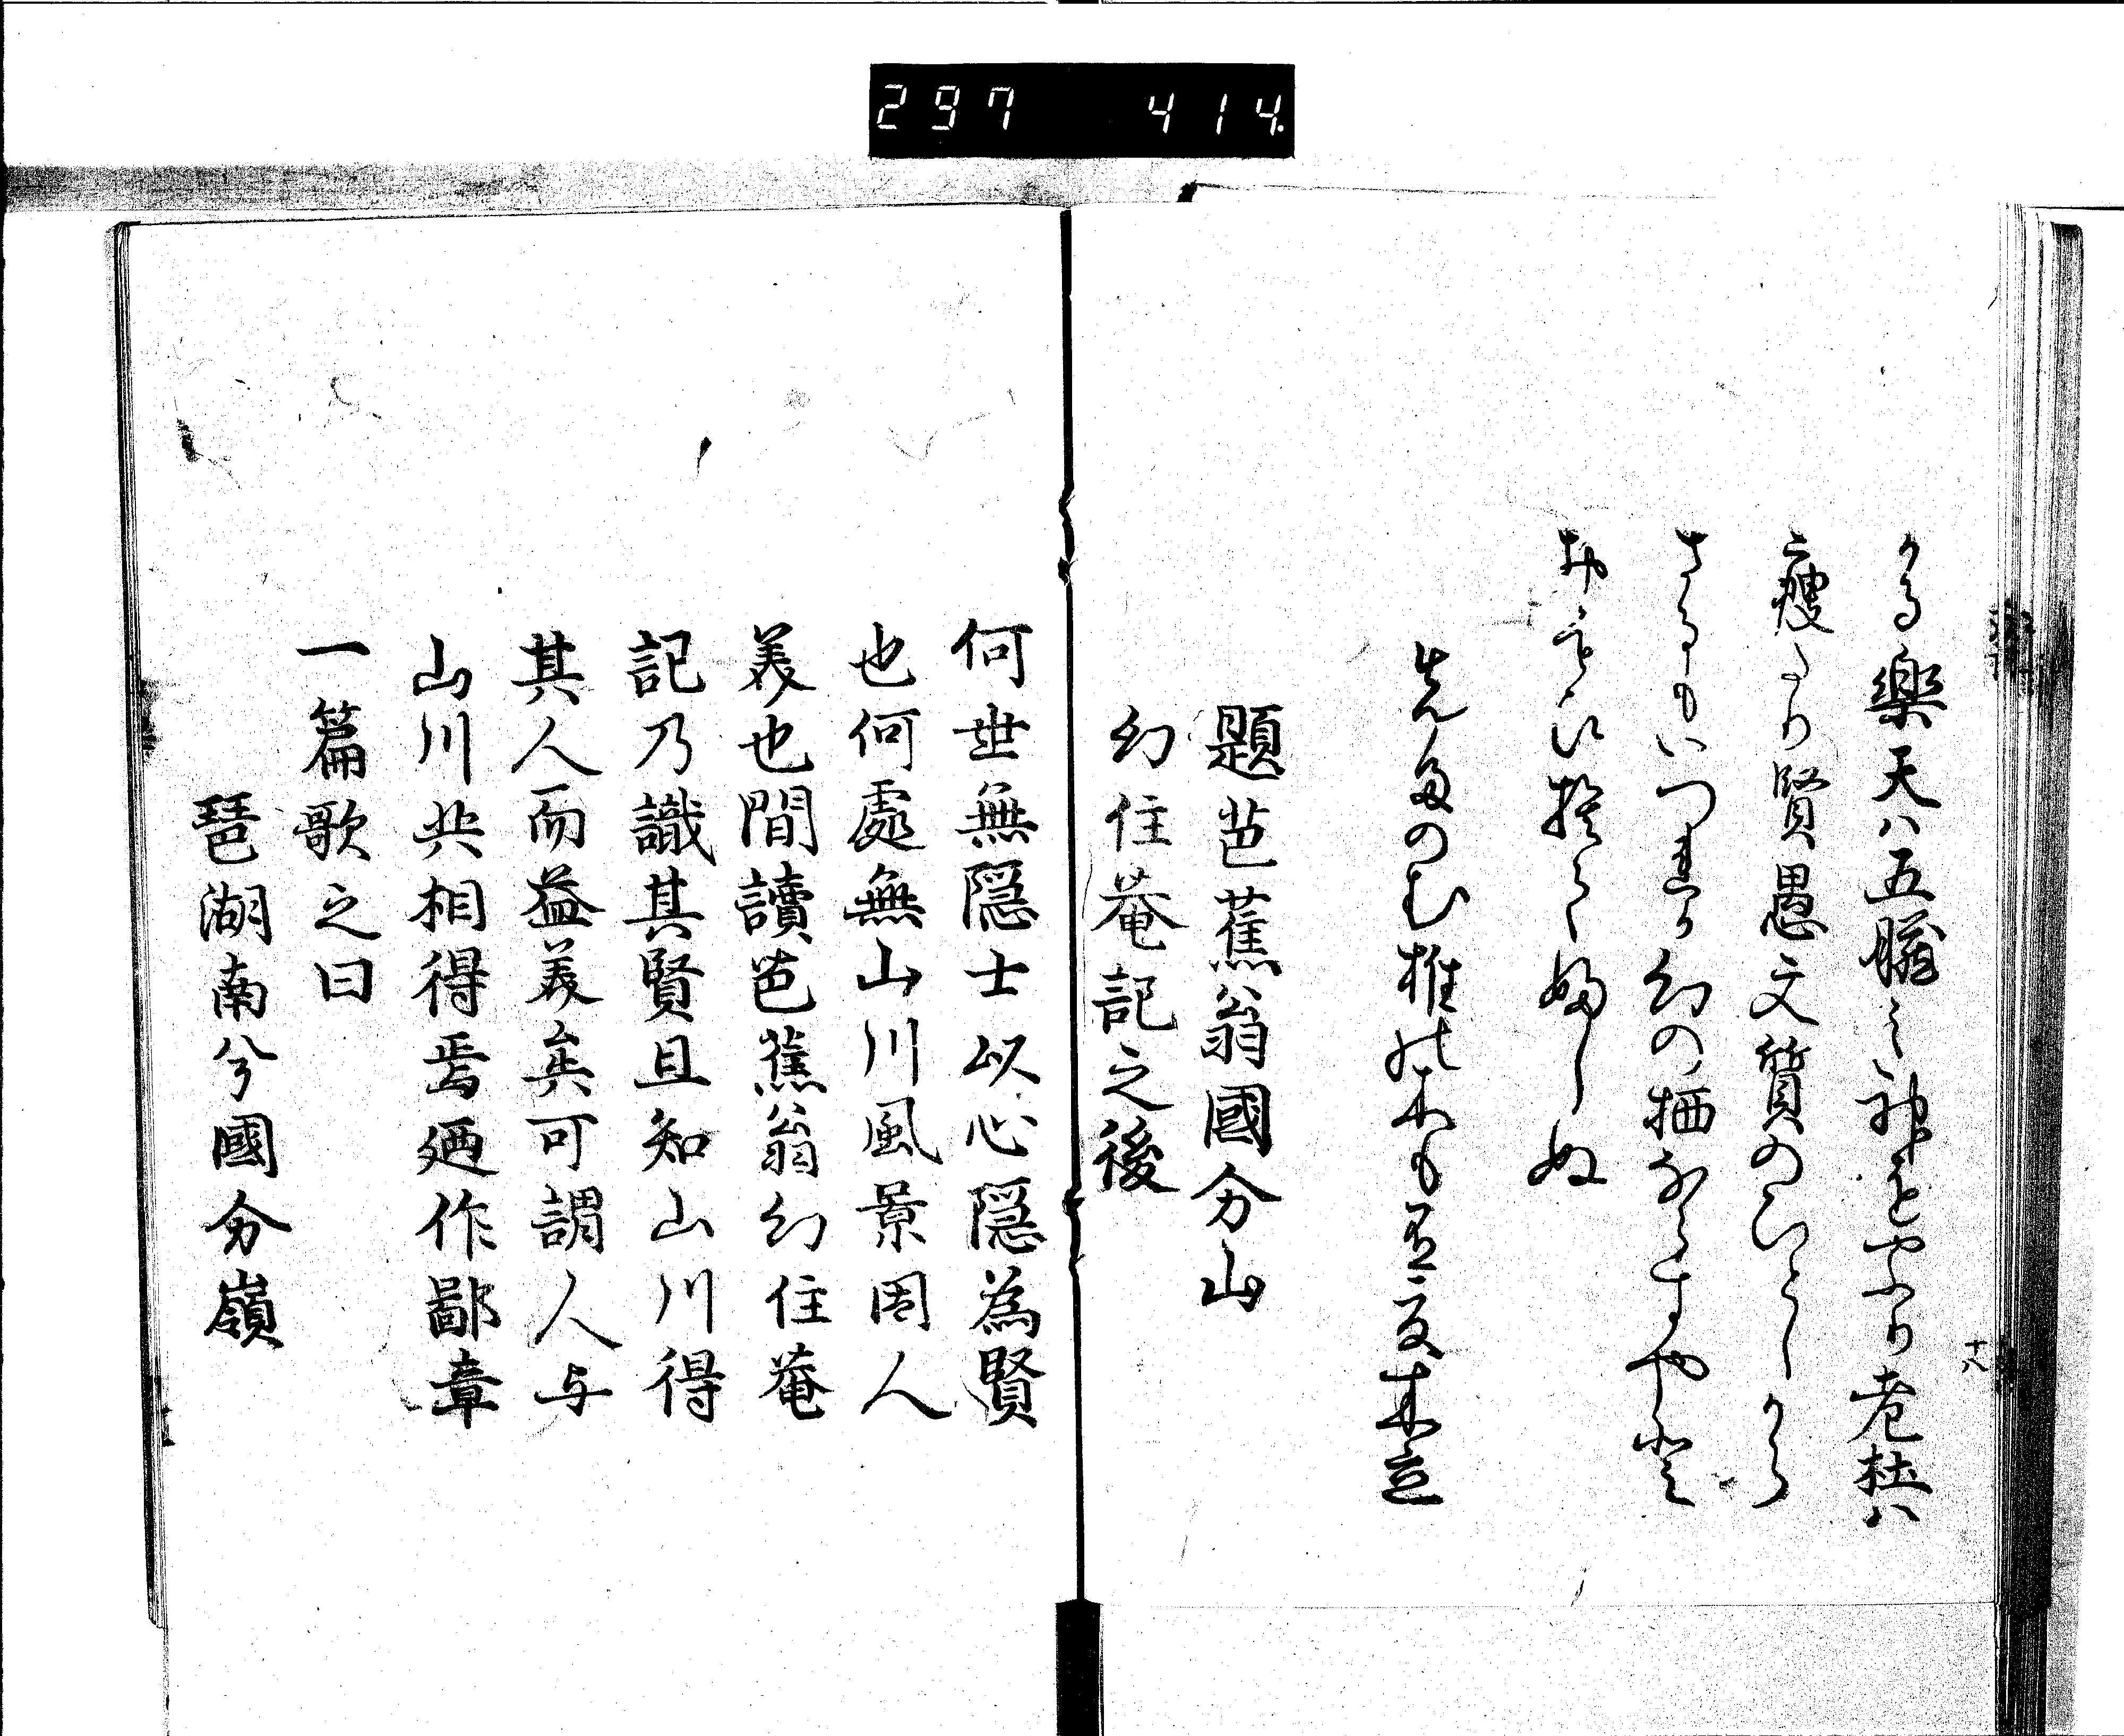 297 414.
かる楽天ハ五臓之神をやふり老杜ハ
痩たり賢愚文質のひとしからさ
さるもいつれか幻の栖ならすやと
おもひ捨てふしぬ
先たのむ椎の木も有夏木立
題芭蕉翁國分山
幻住菴記之後
十八
何世無隠士以心隠為賢
也何處無山川風景因人
美也間讀芭蕉翁幻住菴
記乃識其賢且知山川得
其人而益美矣可謂人与
山川共相得焉廼作鄙章
一篇歌之曰
琶湖南兮國分嶺